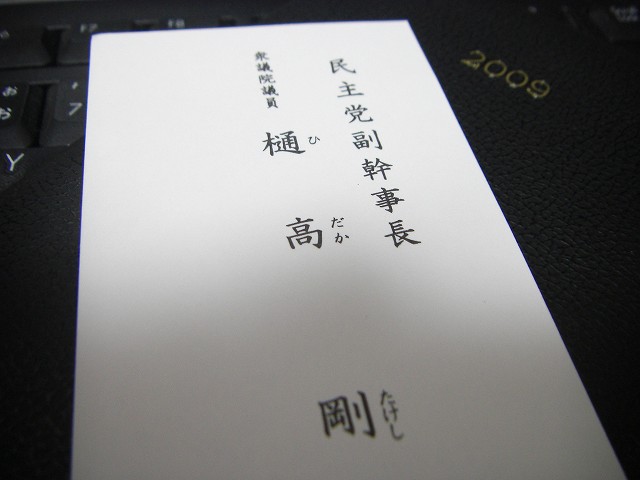 民主党副幹事長
衆議院議員
樋高 剛
ひ だか たけし
2009
F7
F8
あ
お
Y